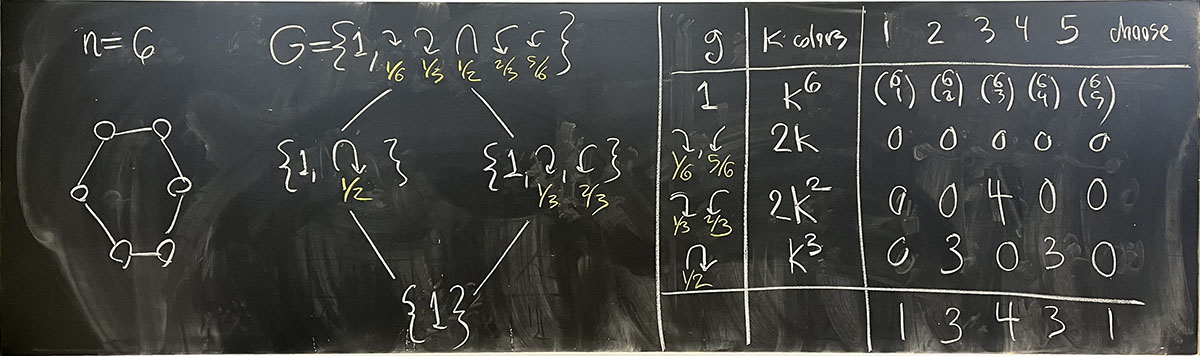 n=6
G={1, ↷ ↷ ↷ ↶ ↶}
1/6 1/3 1/2 2/3 5/6
{1, ↷}
1/2
{1, ↷, ↶}
1/3 2/3
{1}
g K colors 1 2 3 4 5 choose
1 K⁶ (6 1) (6 2) (6 3) (6 4) (6 5)
↷, ↶ 2K 0 0 0 0 0
1/6 5/6
↷ ↶ 2K² 0 0 4 0 0
1/3 2/3
↷ K³ 0 3 0 3 0
1/2
1 3 4 3 1